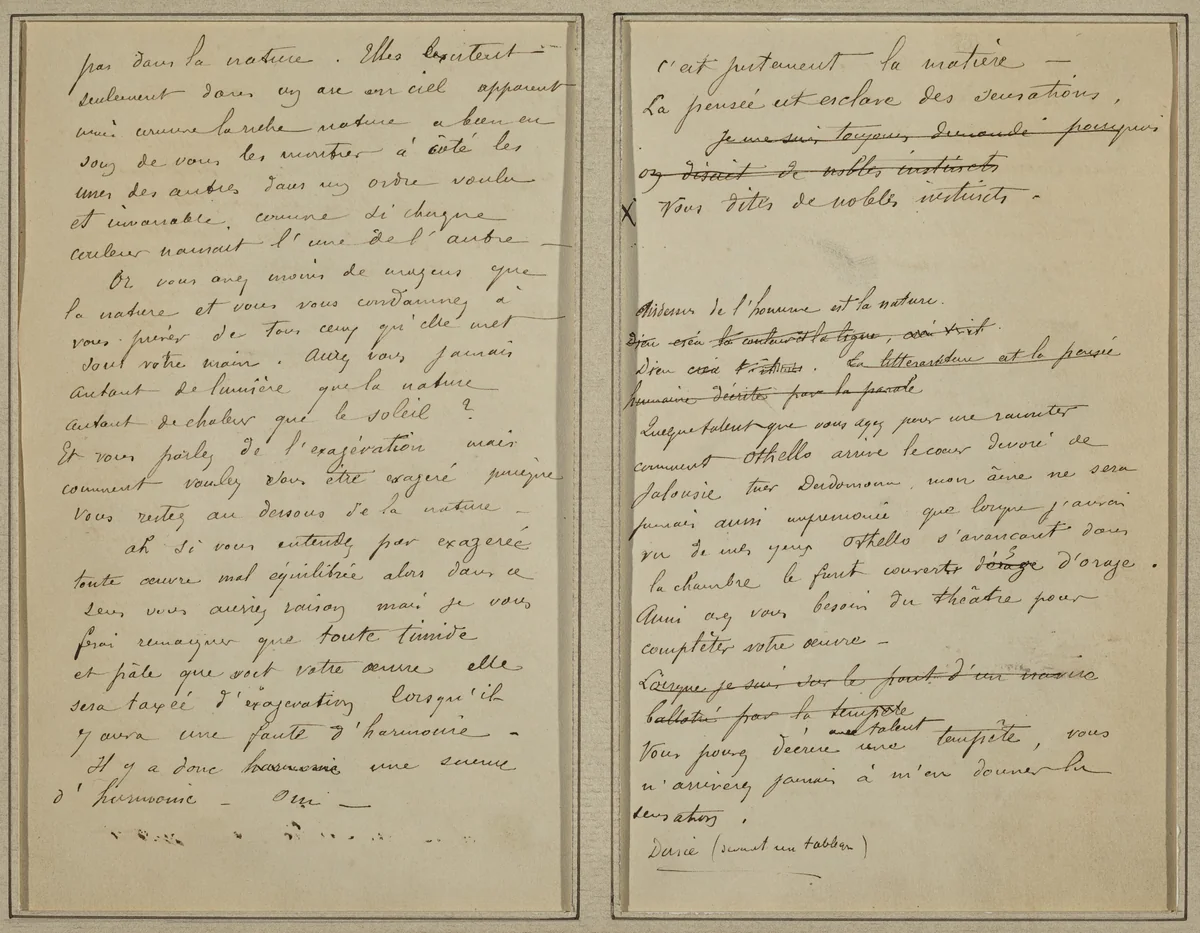 pas dans la nature. Elles existent
seulement dans un arc en ciel apparent
mais comme la riche nature a bien eu
soin de vous les montrer à côté les
unes des autres dans un ordre voulu
et invariable, comme si chaque
couleur naissait l'une de l'autre —
Or vous avez moins de moyens que
la nature et vous vous condamnez à
vous priver de tous ceux qu'elle met
sous votre main. Aurez vous jamais
autant de lumière que la nature
autant de chaleur que le soleil ?
Et vous parlez de l'exagération mais
comment voulez vous être exagéré puisque
vous restez au dessous de la nature —
ah si vous entendez par exagéré
toute œuvre mal équilibrée alors dans ce
sens vous auriez raison mais je vous
ferai remarquer que toute timide
et pâle que soit votre œuvre elle
sera taxée d'exagération lorsqu'il
y aura une faute d'harmonie —
Il y a donc harmonie une science
d'harmonie — Oui —
c'est justement la matière —
La pensée est esclave des sensations,
Je me suis toujours demandé pourquoi
on disait de nobles instincts
X Vous dites de nobles instincts —
Audessus de l'homme est la nature.
Dieu créa la couleur et la ligne,
Dieu créa. La littérature est la pensée
humaine décrite par la parole
Quelque talent que vous ayez pour me raconter
comment Othello arrive le cœur devoré de
Jalousie tuer Desdemona, mon âme ne sera
jamais aussi impressionée que lorsque j'aurai
vu de mes yeux Othello s'avançant dans
la chambre le front couvert d'orage d'orage.
Aussi avez vous besoin du théâtre pour
complêter votre œuvre —
Lorsque je suis sur le pont d'un navire
ballotté par la tempête
Vous pouvez décrire avec talent une tempête, vous
n'arriverez jamais à m'en donner la
sensation.
(devant un tableau)